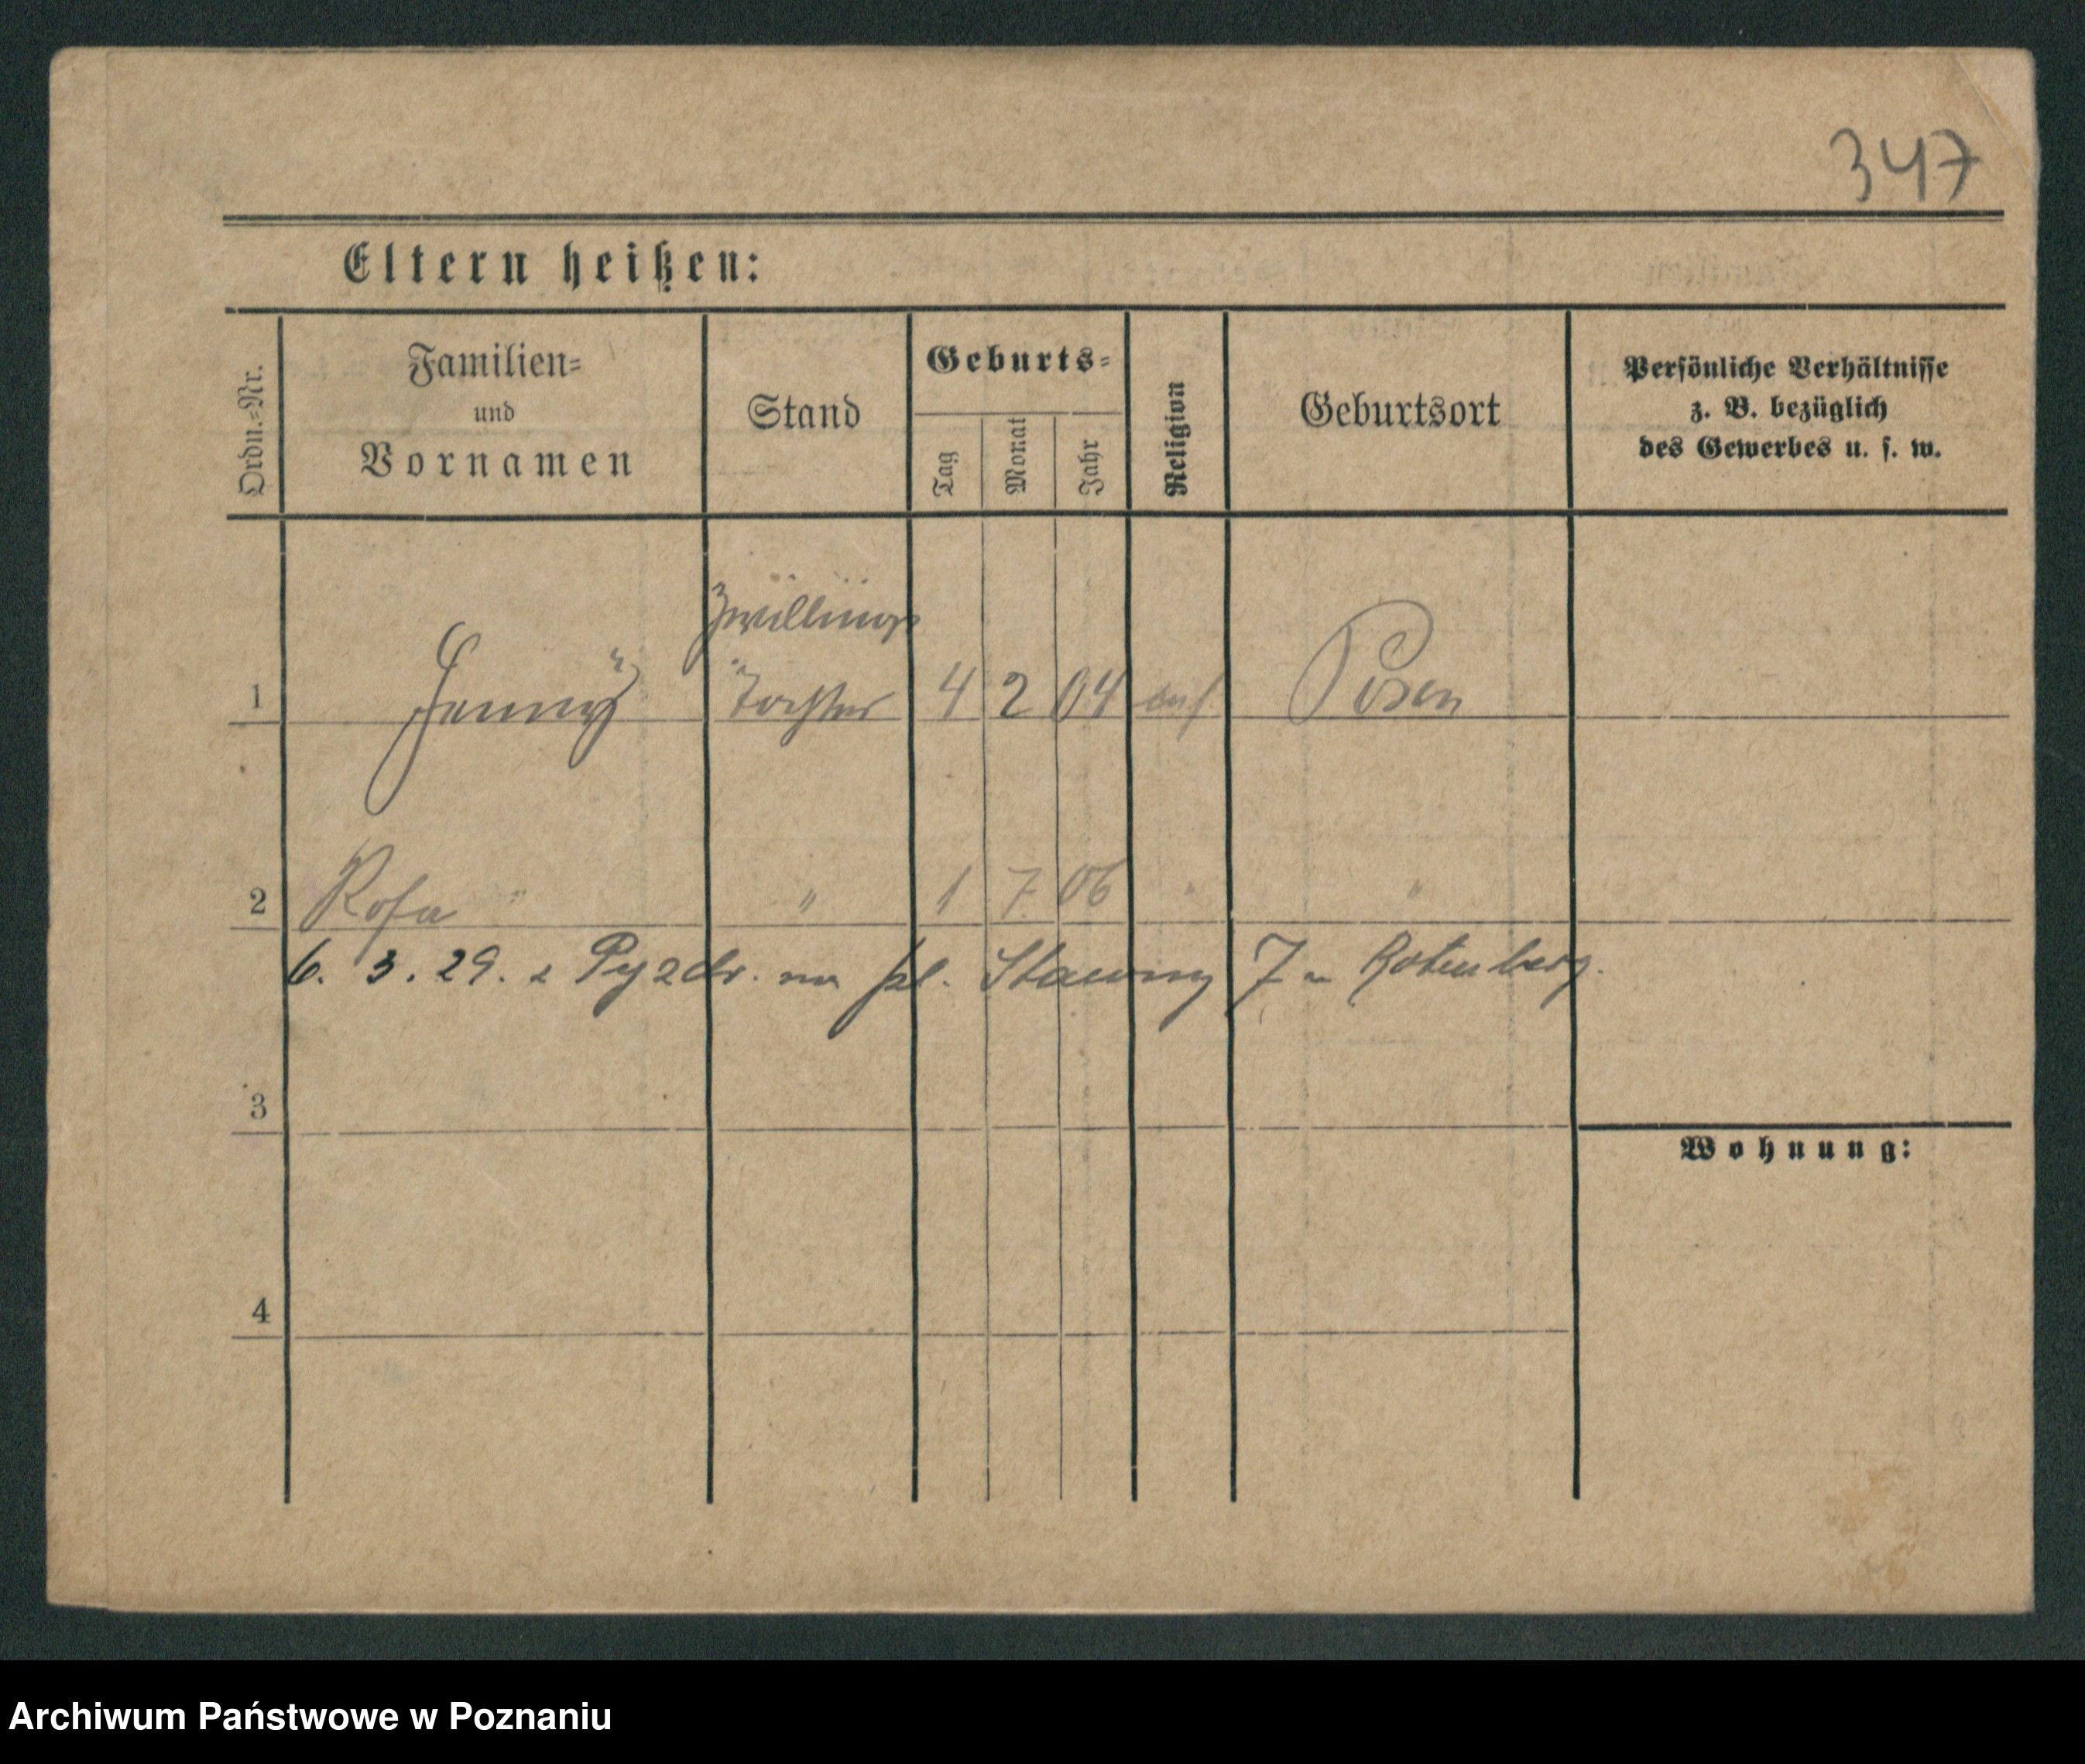 347
Eltern heißen:
Ordn.=Nr.
Familien=
und
Vornamen
Stand
Geburts=
Tag
Monat
Jahr
Religion
Geburtsort
Persönliche Verhältnisse
z. B. bezüglich
des Gewerbes u. s. w.
Zwillings
1 Jenny Tochter 4 2 04 Posen
2 Rosa " " 1 7 06 " "
6. 3. 29. z Pyzdr. na pl. Stawny 7 u Rotenberg.
3
Wohnung:
4
Archiwum Państwowe w Poznaniu